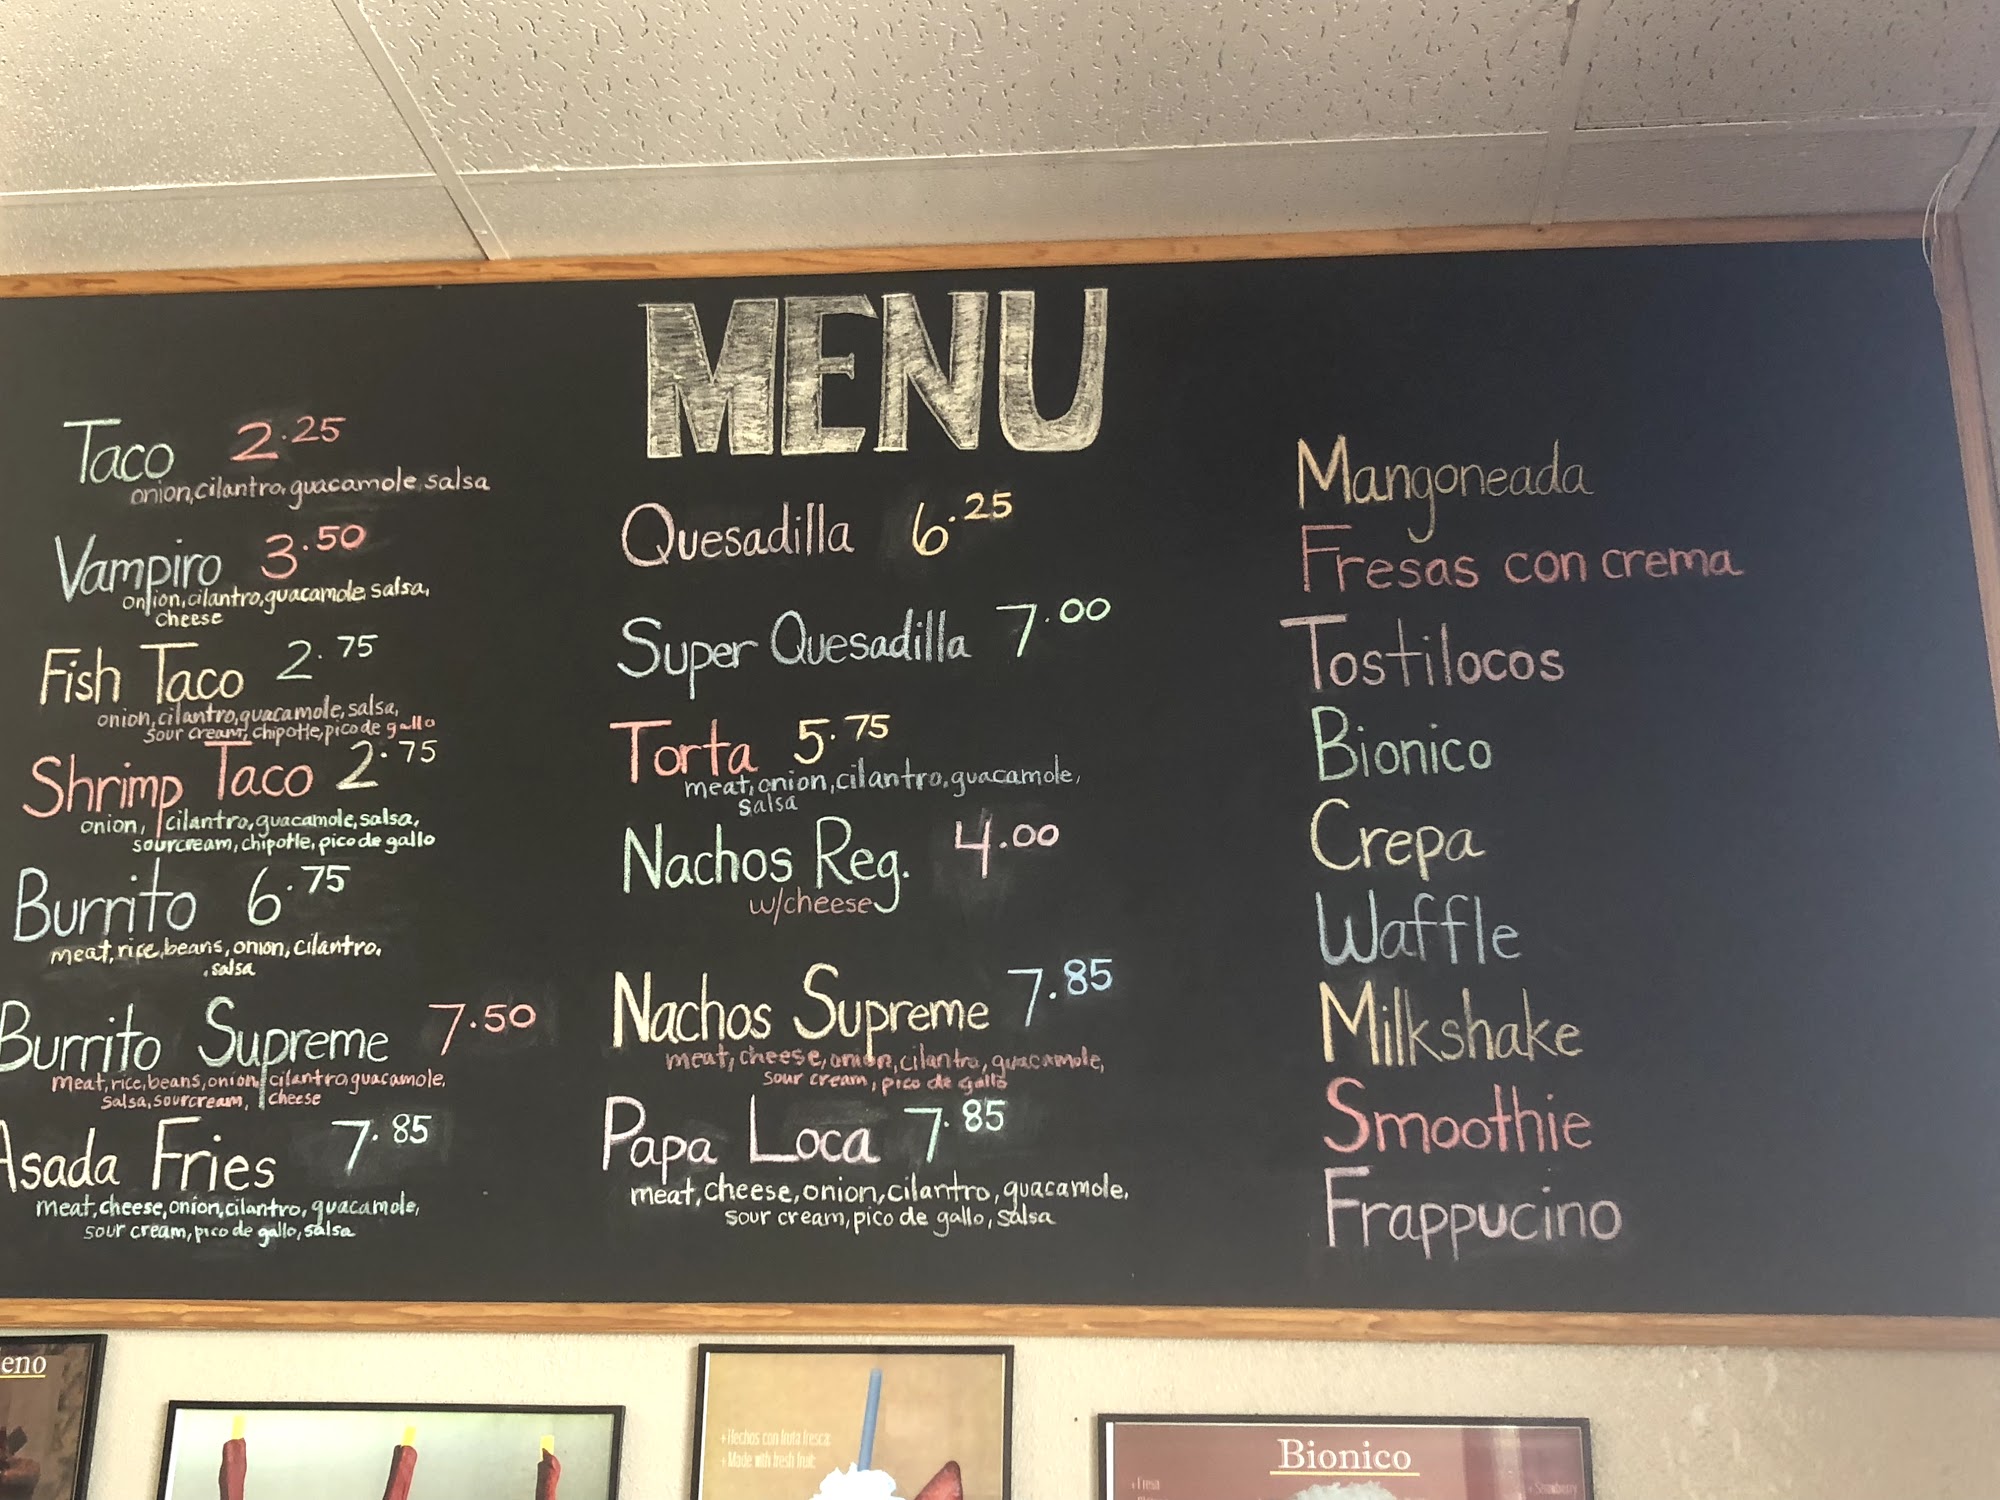 MENU
Taco 2.25
onion, cilantro, guacamole, salsa
Vampiro 3.50
onion, cilantro, guacamole, salsa,
cheese
Fish Taco 2.75
onion, cilantro, guacamole, salsa,
sour cream, chipotle, pico de gallo
Shrimp Taco 2.75
onion, cilantro, guacamole, salsa,
sour cream, chipotle, pico de gallo
Burrito 6.75
meat, rice, beans, onion, cilantro,
, salsa
Burrito Supreme 7.50
meat, rice, beans, onion, cilantro, guacamole,
salsa, sour cream, cheese
Asada Fries 7.85
meat, cheese, onion, cilantro, guacamole,
sour cream, pico de gallo, salsa
Quesadilla 6.25
Super Quesadilla 7.00
Torta 5.75
meat, onion, cilantro, guacamole,
salsa
Nachos Reg. 4.00
w/cheese
Nachos Supreme 7.85
meat, cheese, onion, cilantro, guacamole,
sour cream, pico de gallo
Papa Loca 7.85
meat, cheese, onion, cilantro, guacamole,
sour cream, pico de gallo, salsa
Mangoneada
Fresas con crema
Tostilocos
Bionico
Crepa
Waffle
Milkshake
Smoothie
Frappucino
eno
+Hechos con fruta fresca
+Made with fresh fruit
Bionico